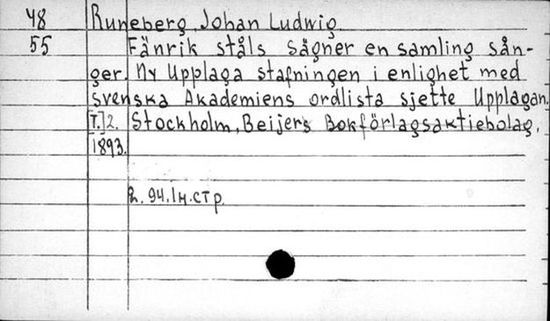 48 Runeberg, Johan Ludwig
55 Fänrik ståls sägner en samling sån-
ger. Ny Upplaga stafningen i enlighet med
svenska Akademiens ordlista sjette Upplagan.
[T.]2. Stockholm, Beijers Bokförlagsaktiebolag,
1893.
2. 94. 1н. стр.